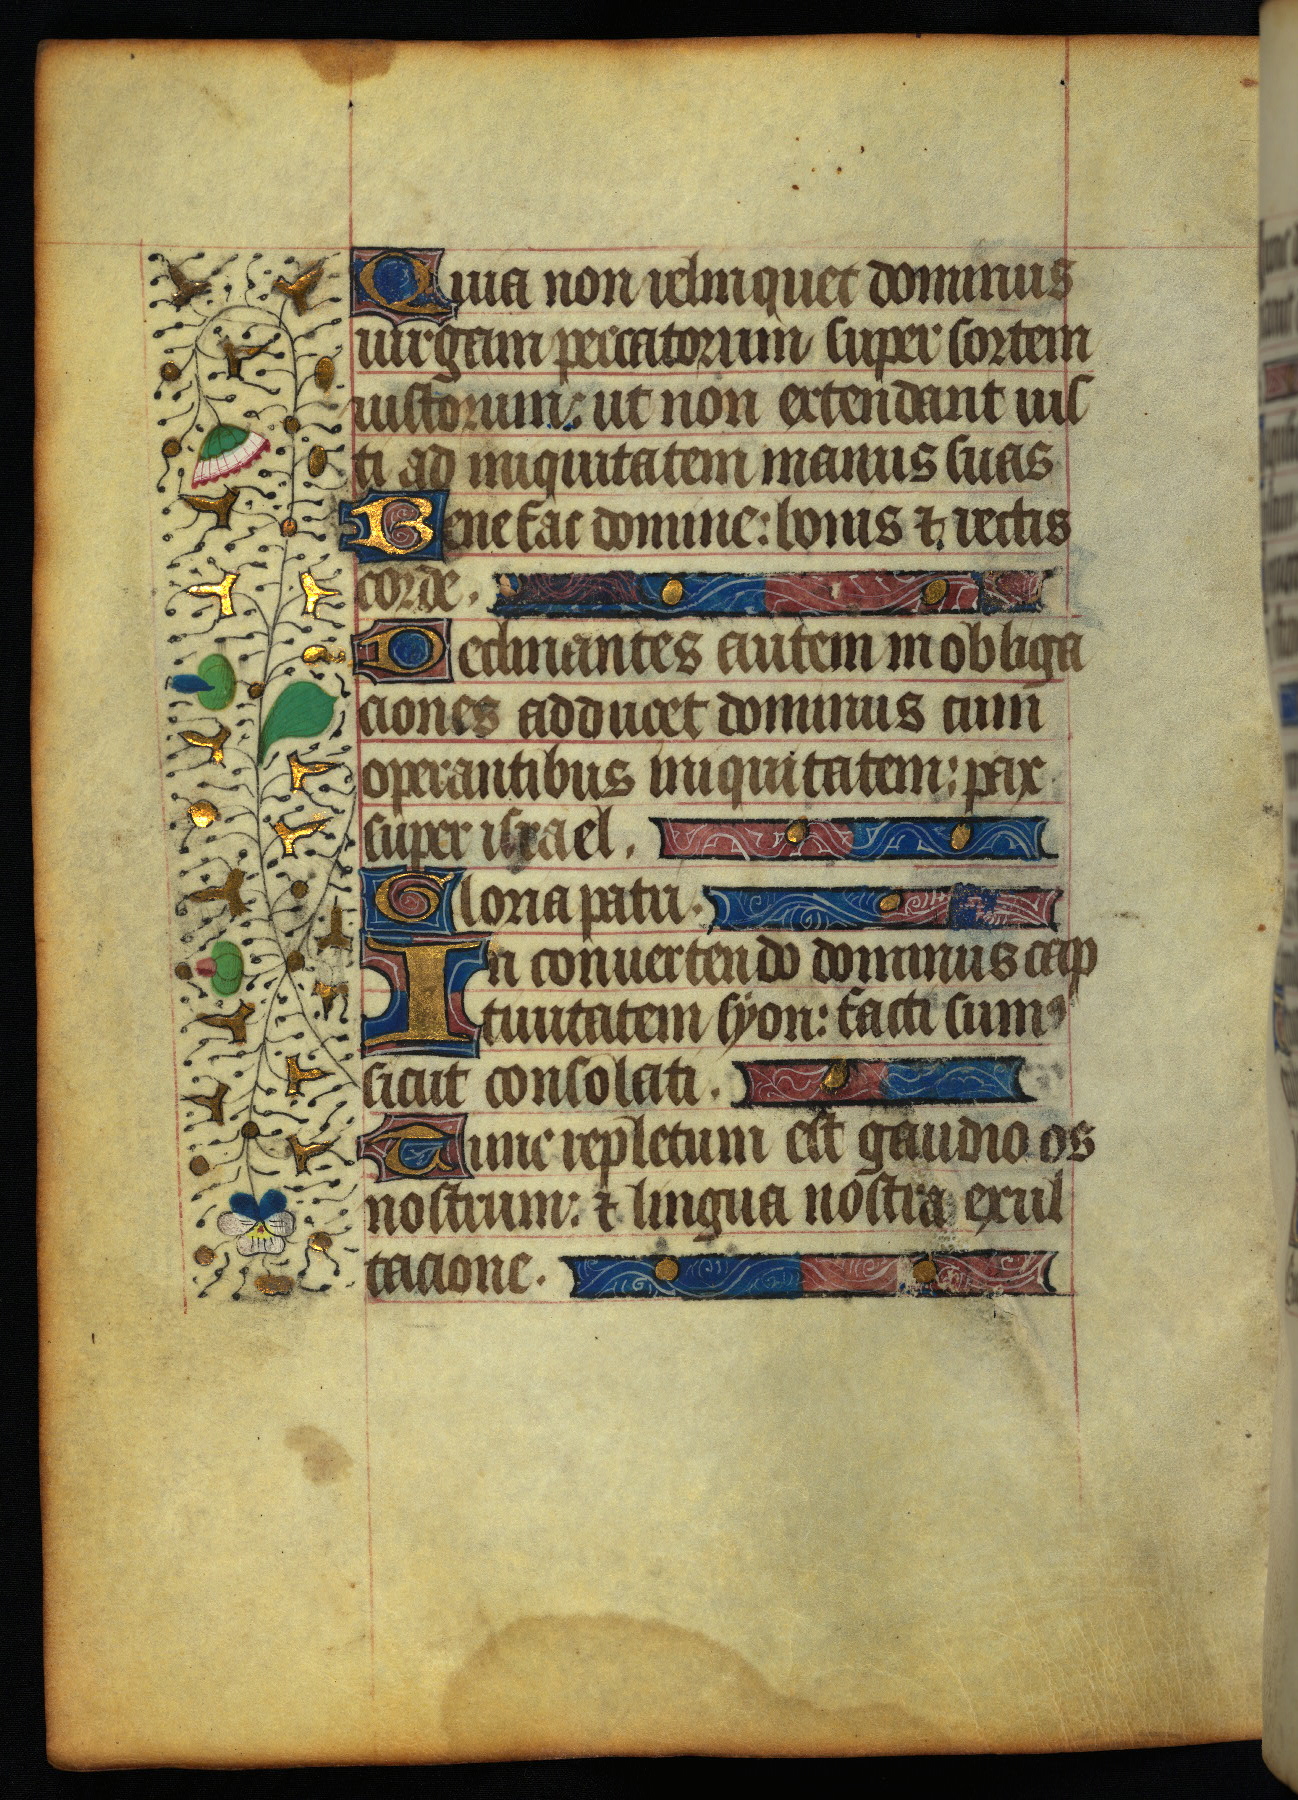 Quia non relinquet dominus
uirgam peccatorum super sortem
iustorum: ut non extendant ius
ti ad iniquitatem manus suas
Benefac domine: bonis ⁊ rectis
corde.
Declinantes autem in obliga
ciones adducet dominus cum
operantibus iniquitatem: pax
super israel.
Gloria patri.
In conuertendo dominus cap
tiuitatem syon: facti sumꝰ
sicut consolati.
Tunc repletum est gaudio os
nostrum: ⁊ lingua nostra exul
tacione.